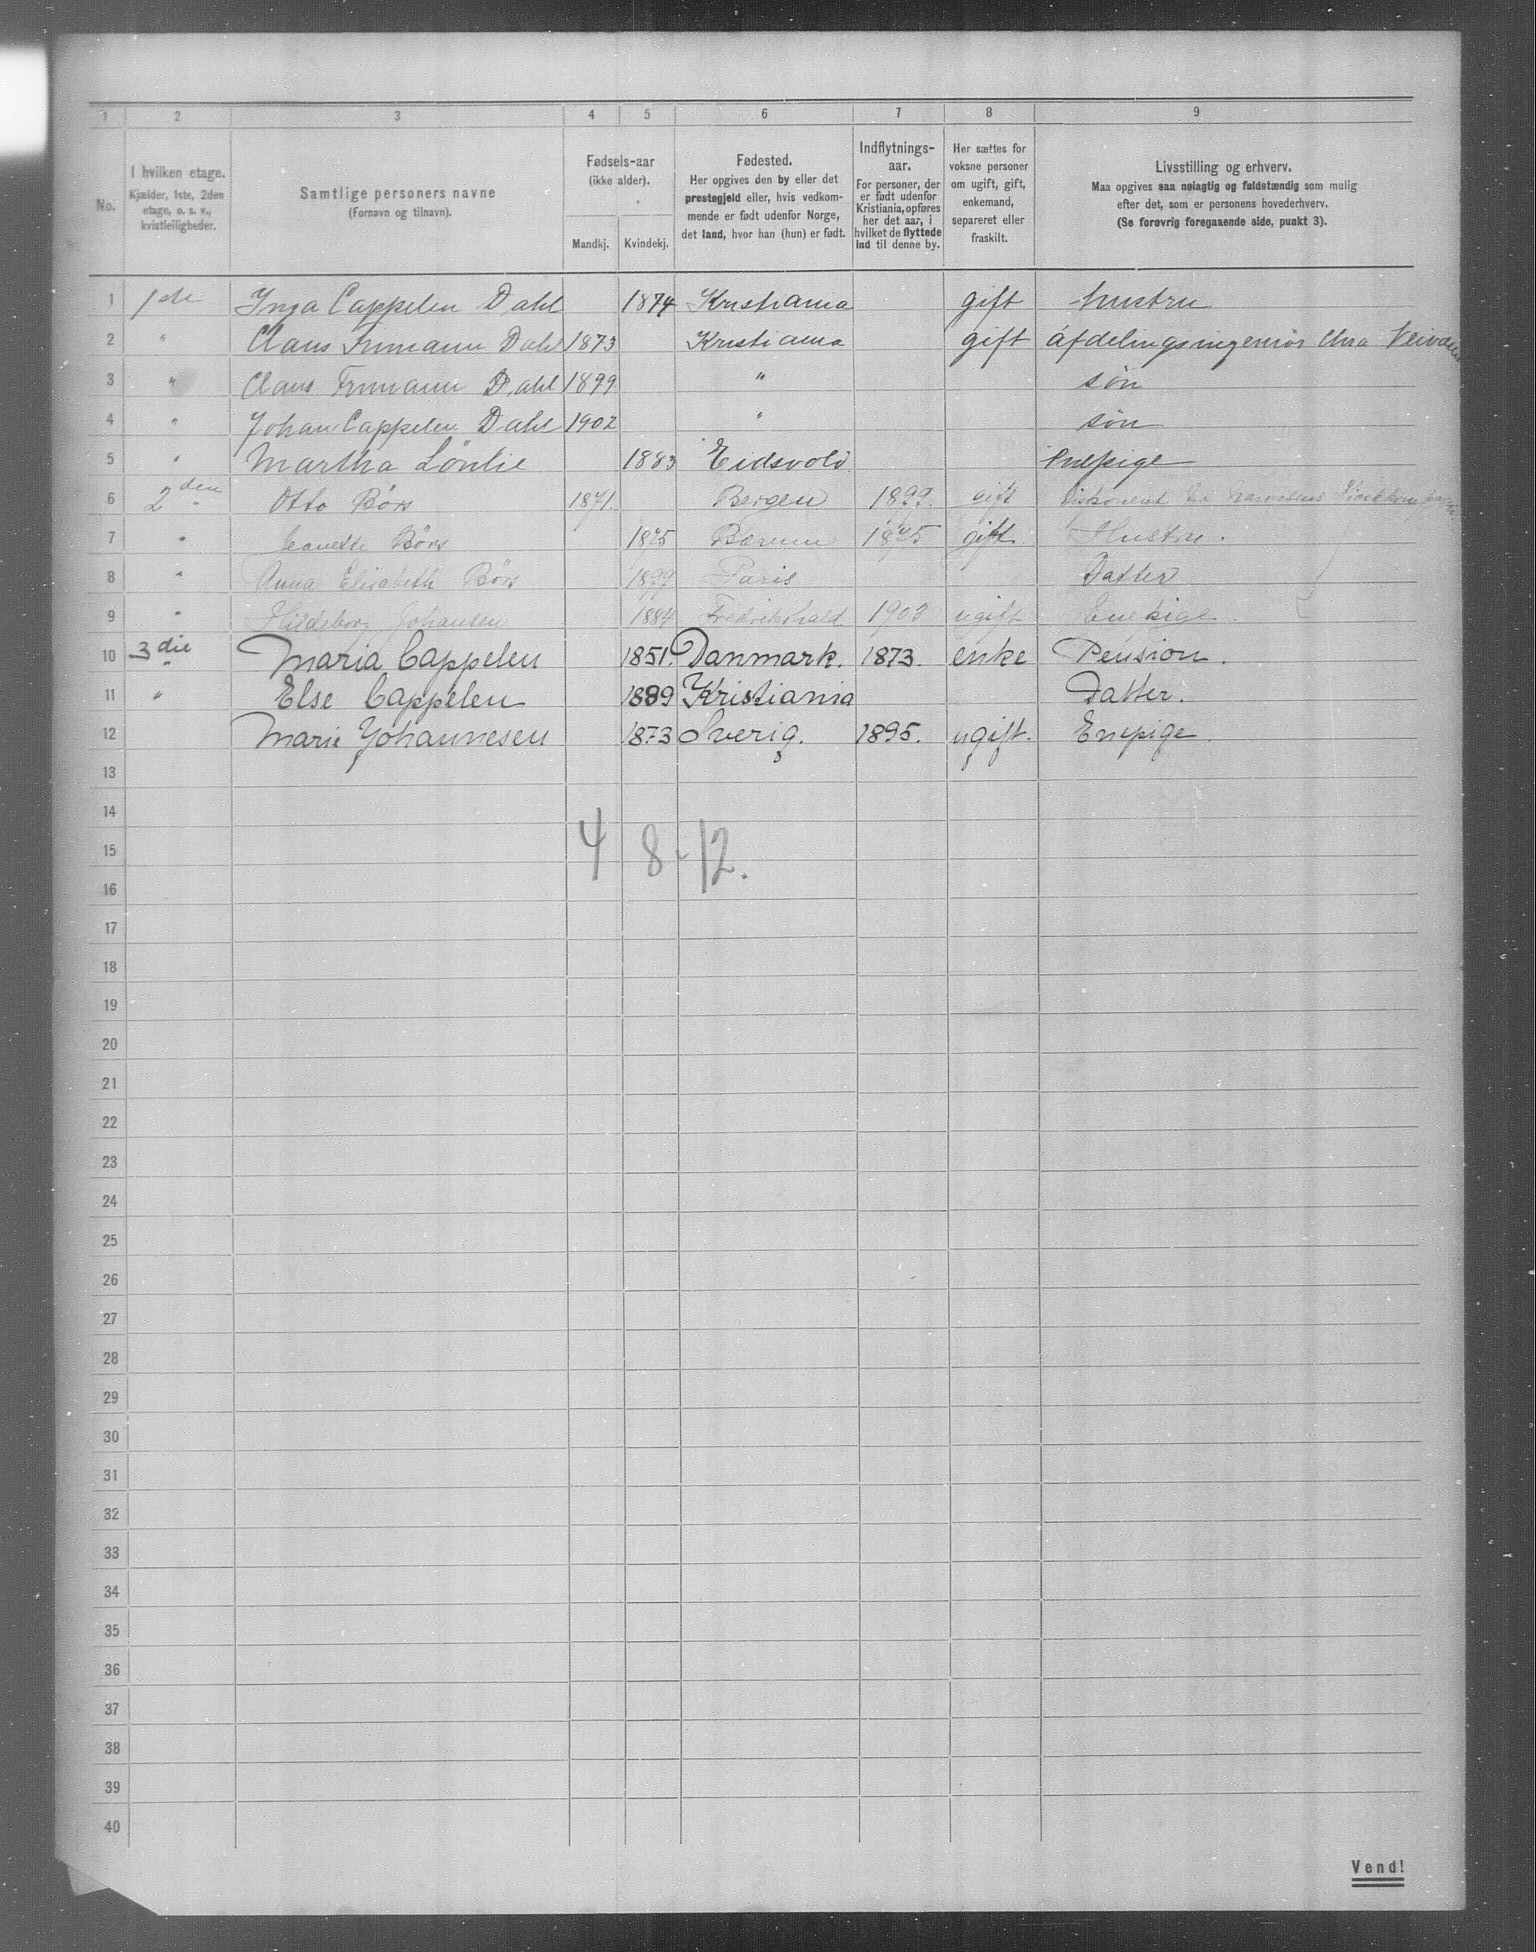 1 2 3 4 5 6 7 8 9
No.
I hvilken etage.
Kjælder, 1ste, 2den
etage, o. s. v.,
kvistleiligheder.
Samtlige personers navne
(Fornavn og tilnavn).
Fødsels-aar
(ikke alder).
Mandkj. Kvindekj.
Fødested.
Her opgives den by eller det
prestegjeld eller, hvis vedkom-
mende er født udenfor Norge,
det land, hvor han (hun) er født.
Indflytnings-
aar.
For personer, der
er født udenfor
Kristiania, opføres
her det aar, i
hvilket de flyttede
ind til denne by.
Her sættes for
voksne personer
om ugift, gift,
enkemand,
separeret eller
fraskilt.
Livsstilling og erhverv.
Maa opgives saa nøiagtig og fuldstændig som mulig
efter det, som er personens hovederhverv.
(Se forøvrig foregaaende side, punkt 3).
1 1ste Inga Cappelen Dahl 1874 Kristiania gift hustru
2 " Claus Frimann Dahl 1873 Kristiania gift afdelingsingeniør Chra
3 " Claus Frimann Dahl 1899 " søn
4 " Johan Cappelen Dahl 1902 " søn
5 " Martha Lønlie 1883 Eidsvold Enepige
6 2den " Otto Börs 1871. Bergen 1899. gift
7 " Jeanette Börs 1875 Bærum 1875 gift Hustru.
8 " Anna Elisabeth Börs 1899 Paris Datter
9 " Hildeborg Johansen 1884 Fredrikshald 1903 ugift Enepige.
10 3die " Maria Cappelen 1851. Danmark. 1873. enke Pension.
11 " Else Cappelen 1889 Kristiania Datter.
12 Marie Johannesen 1873 Sverig. 1895. ugift. Enepige.
13
14
15 4 8 - 12.
16
17
18
19
20
21
22
23
24
25
26
27
28
29
30
31
32
33
34
35
36
37
38
39
40
Vend!